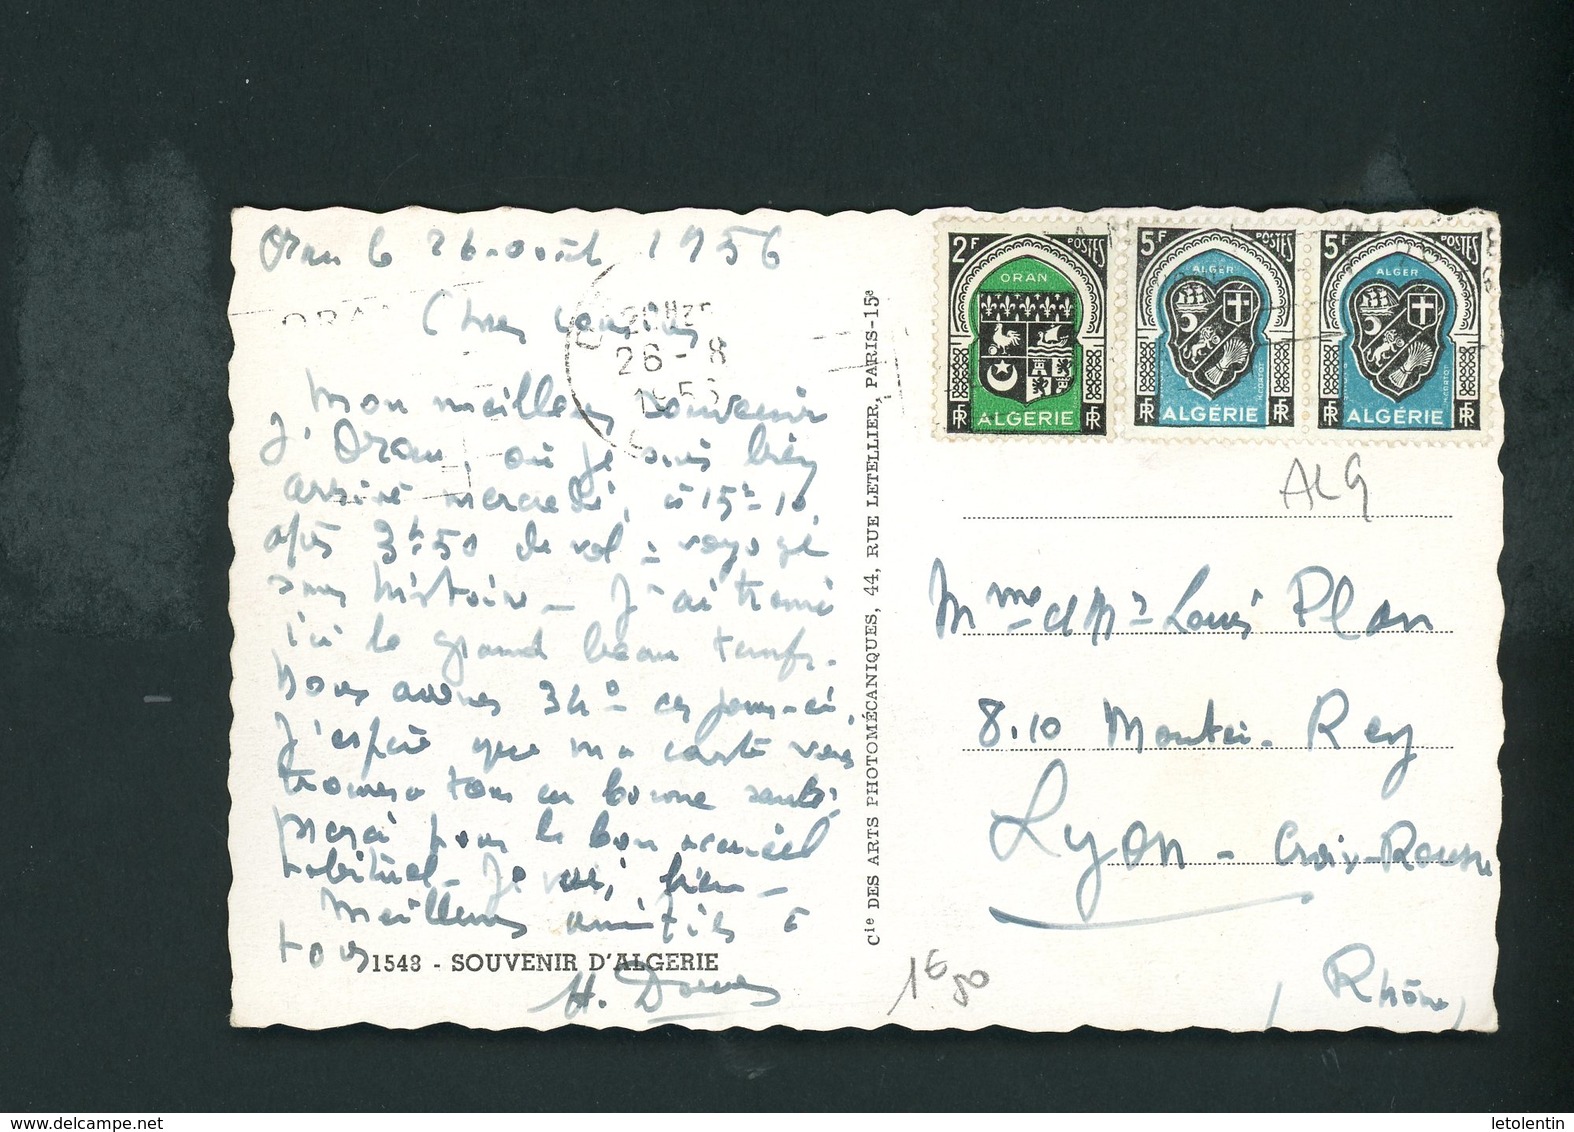 Oran le 26 août 1956
ORAN
20H25
26 - 8
1956
Chers
Mon meilleur souvenir
d'Oran, où je suis bien
arrivé mercredi, à 15h 10,
après 3h 50 de vol - voyage
sans histoire - J'ai trouvé
ici le grand beau temps.
Nous avons 34° ces jours-ci.
J'espère que ma carte vous
trouvera tous en bonne santé.
Merci pour le bon accueil
habituel. Je vais bien -
Meilleures amitiés à
tous
H.
1543 - SOUVENIR D'ALGERIE
Cie DES ARTS PHOTOMÉCANIQUES, 44, RUE LETELLIER, PARIS-15e
2F POSTES
ORAN
RF ALGÉRIE RF
5F POSTES
ALGER
RF ALGÉRIE RF
5F POSTES
ALGER
RF ALGÉRIE RF
ALG
Mme et Mr Louis Plan
8.10 Montei- Rey
Lyon - Croix-Rousse
(Rhône)
1E50
letolentin